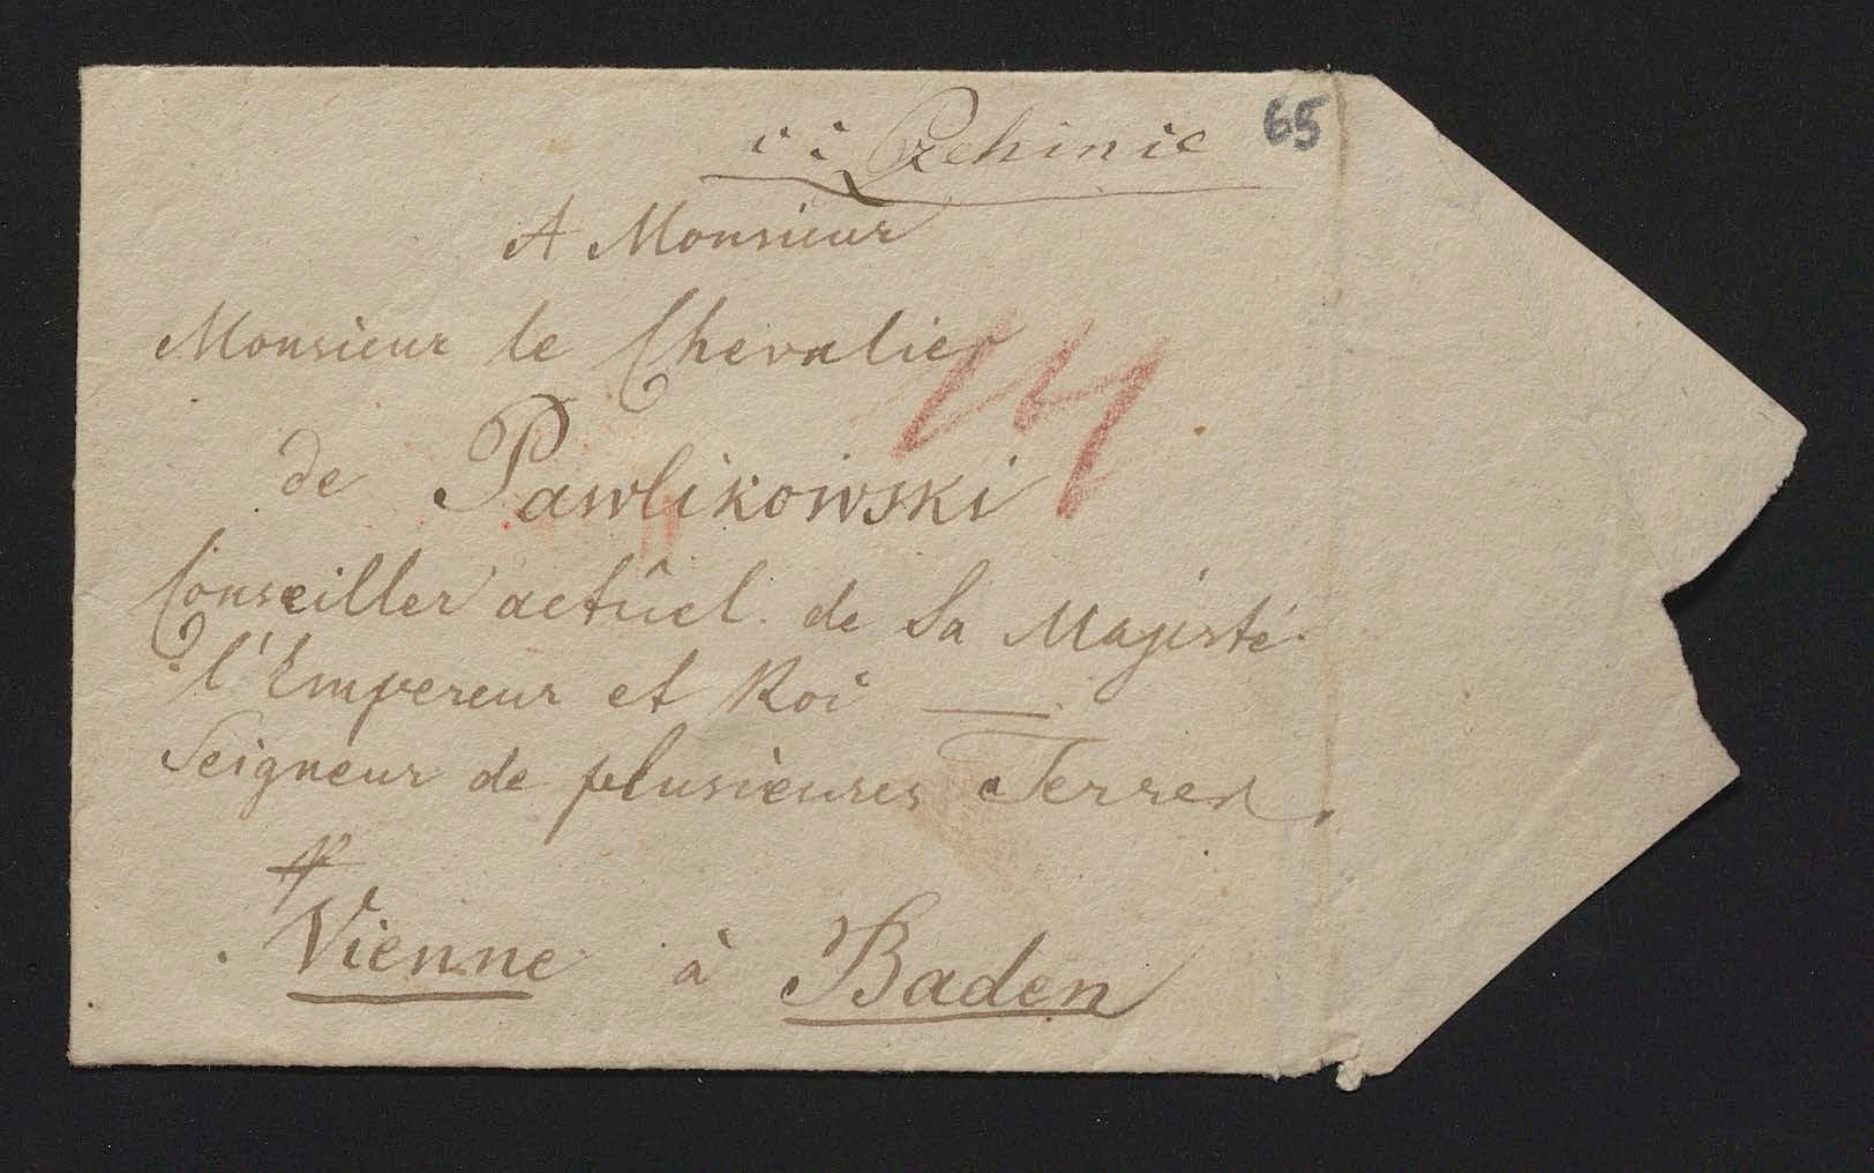 65
A Monsieur
Monsieur le Chevalier
de Pawlikowski
Conseiller actûel de Sa Majesté
l'Empereur et Roi —
Seigneur de plusieures Terres.
Vienne à Baden